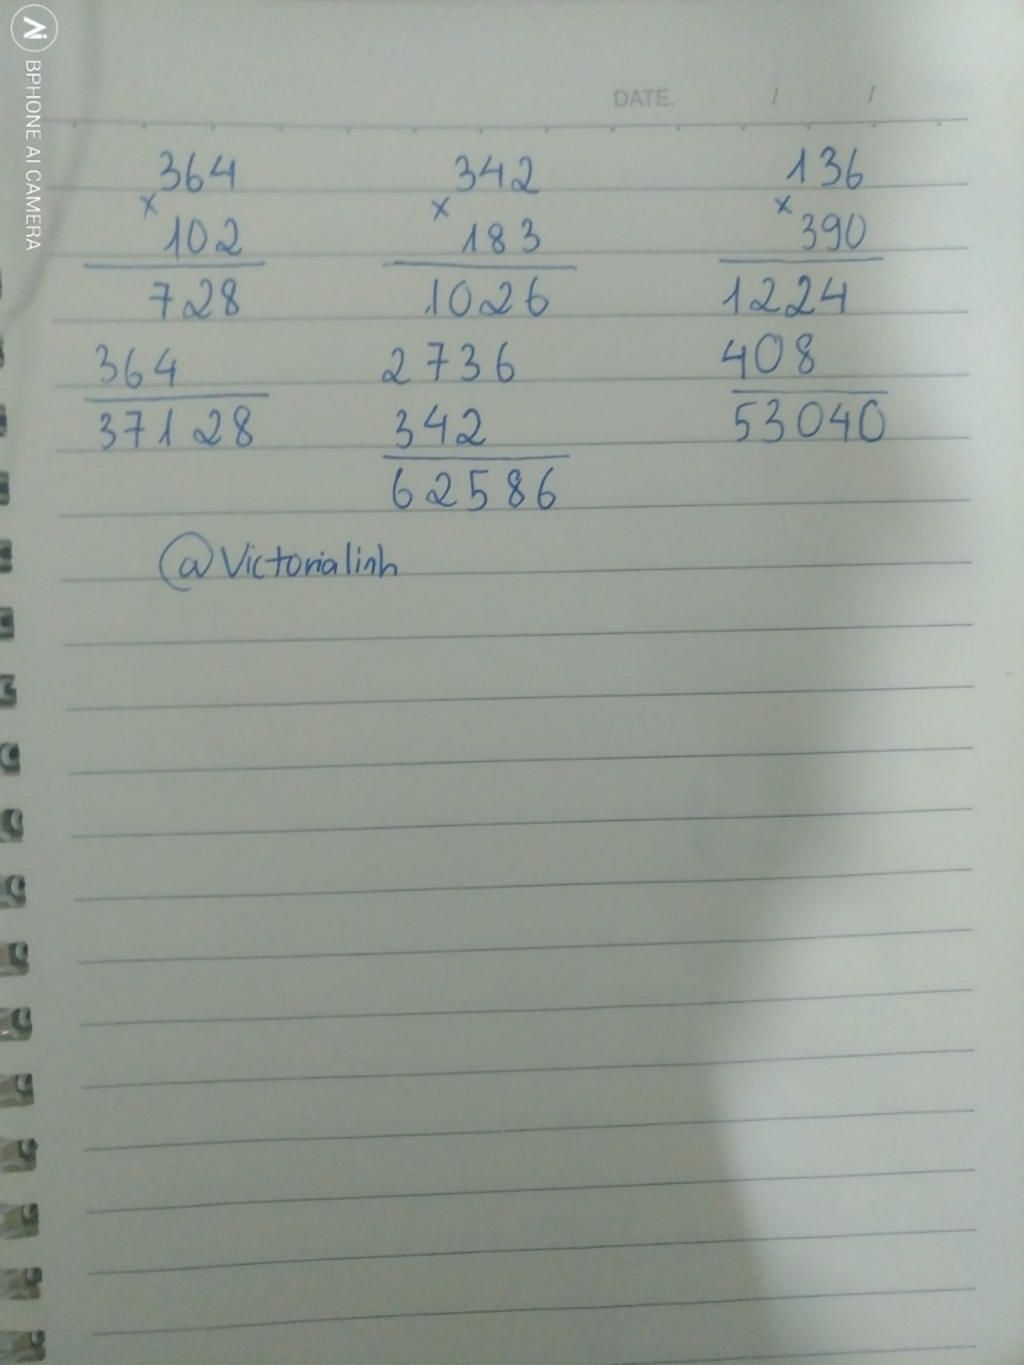 BPHONE AI CAMERA
DATE. / /
364
x
102
728
364
37128
342
x
183
1026
2736
342
62586
136
x
390
1224
408
53040
@Victorialinh